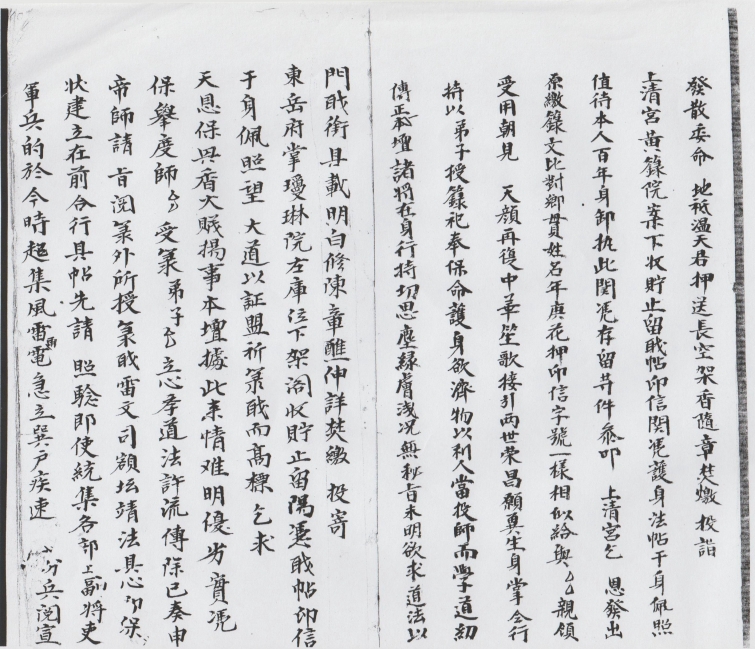 發散委命　地祗溫天君押送長空架香隨章焚燉　投詣
上清宮黃籙院案下收貯止留戢帖印信関凴護身法帖于身佩照
值待本人百年身卸执此関凴存留其件叅叩　上清宮乞　恩發出
原繳籙文比對鄉貫姓名年庚花押印信字號一樣相似給與厶厶親領
受用朝見　天顏再復中華笙歌接引两世荣昌願真生身掌令行
持以弟子授籙祀奉保命護身欲濟物以利人當投師而學道初
傳正本壇諸將在身行持切思塵緣膚淺況無秘旨未明欲求道法以
門戢衔具載明白修陳章醮伸詳焚繳　投寄
東岳府掌瓊琳院左庫位下架阁收貯止留陽凴戢帖印信
于身佩照望　大道以証盟祈箓戢而高標乞求
天恩保興香火賊揚事本壇據此来情难明優劣實凴
保舉度師厶受箓弟子厶立心孝道法許流傳除已奏申
帝師請旨阅箓外所授箓戢雷文司額坛靖法具心印保
狀建立在前合行具帖先請　照聡即使統集各部上副將吏
軍兵的於今時超集風雷雨電急立巽户疾速　兵阅宣